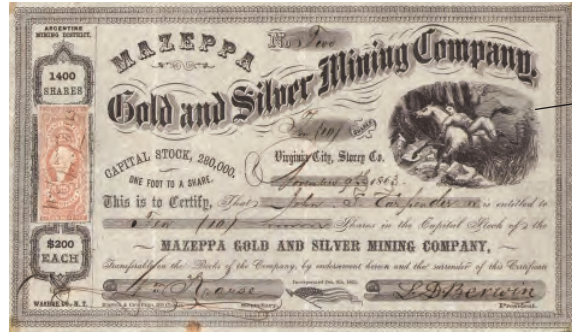 ARGENTINE
MINING DISTRICT.
1400
SHARES
$200
EACH
WASHOE CO., N. T.
No Two
MAZEPPA
Gold and Silver Mining Company.
Ten (10) SHARES
CAPITAL STOCK, 280,000.
ONE FOOT TO A SHARE.
Virginia City, Storey Co.
November 9th 1863.
This is to Certify, That John S. Carpender is entitled to
Ten (10) Shares in the Capital Stock of the
MAZEPPA GOLD AND SILVER MINING COMPANY,
Transferable on the Books of the Company, by endorsement hereon and the surrender of this Certificate
Wm Krause
Secretary.
L. D. Berwin
President.